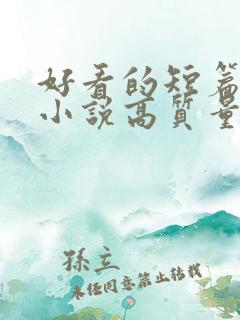 好看的短篇
小説高質量
孫立
未经同意禁止转载